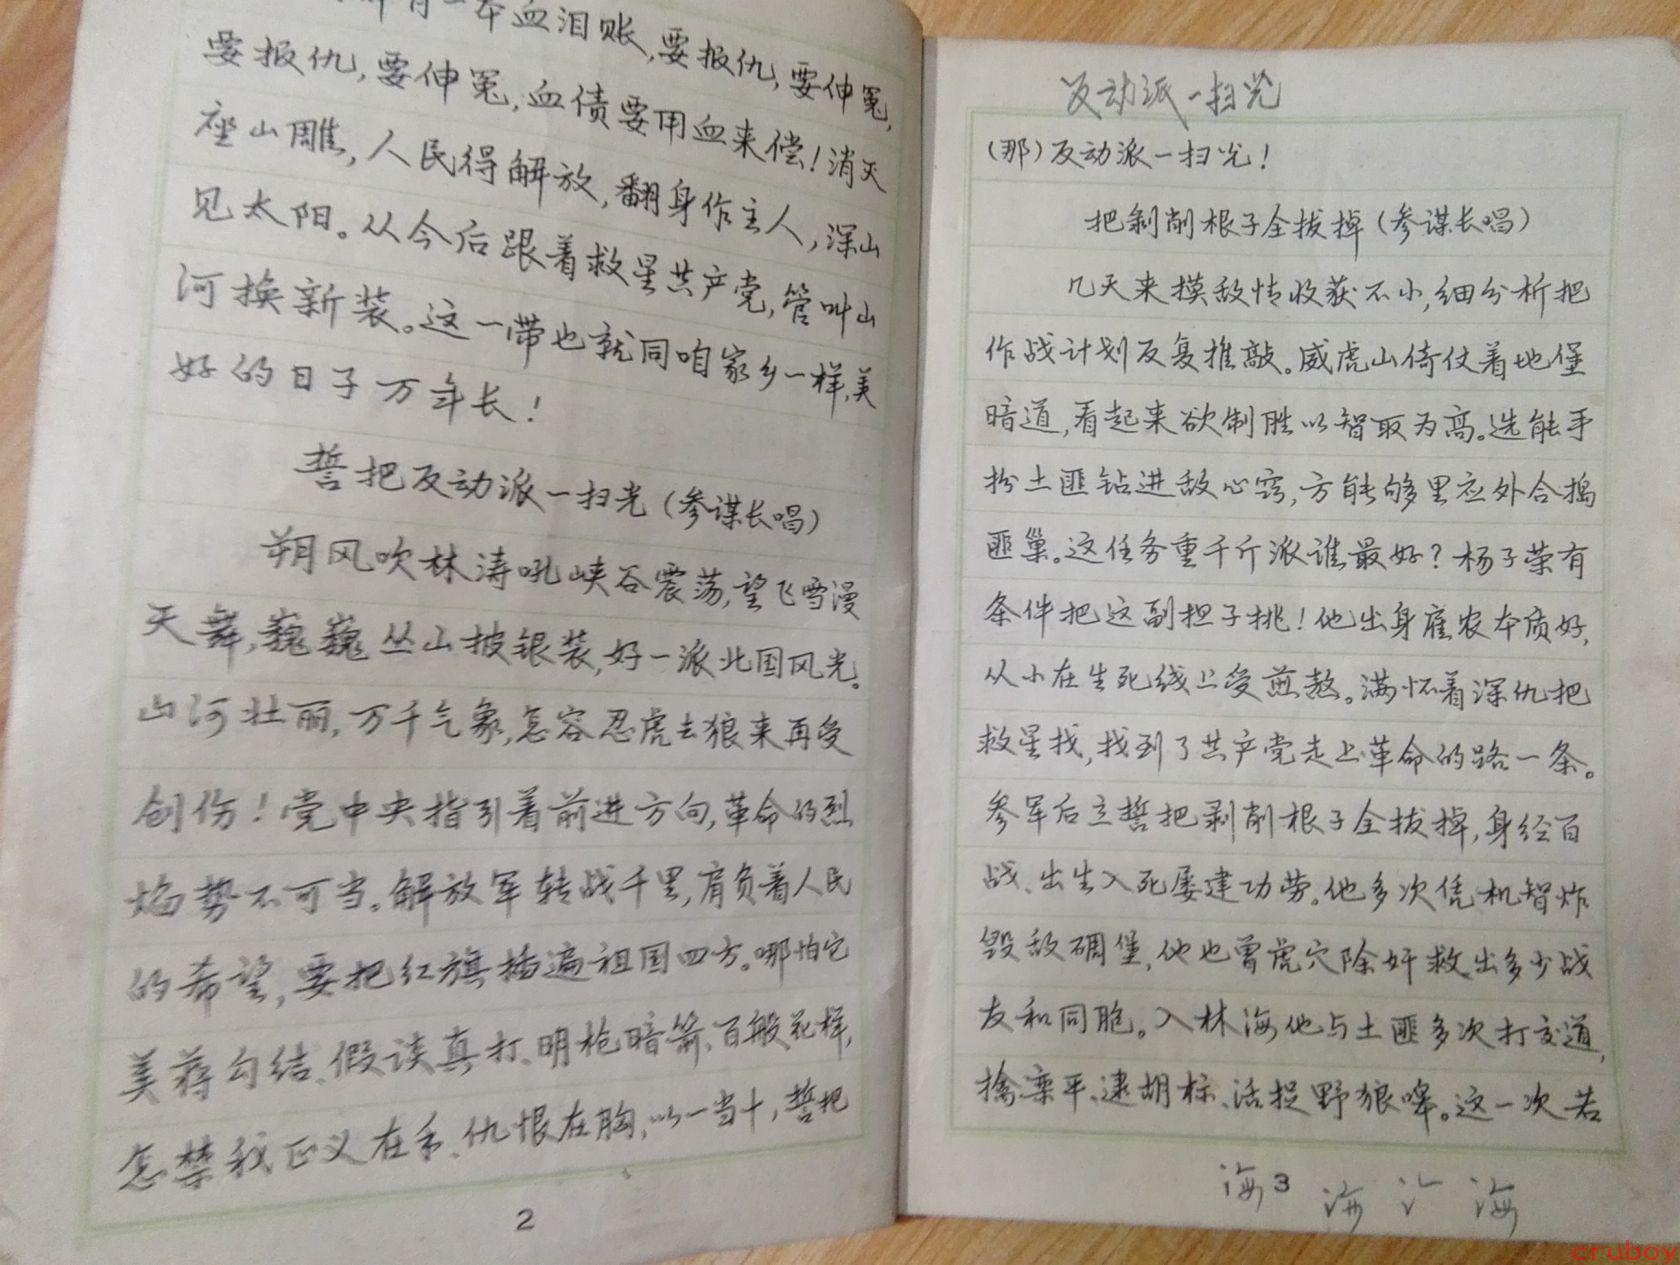 一本血泪账,要报仇,要伸冤,
要报仇,要伸冤,血债要用血来偿!消灭
座山雕,人民得解放,翻身作主人,深山
见太阳。从今后跟着救星共产党,管叫山
河换新装。这一带也就同咱家乡一样,美
好的日子万年长!
誓把反动派一扫光(参谋长唱)
朔风吹林涛吼峡谷震荡,望飞雪漫
天舞,巍巍丛山披银装,好一派北国风光。
山河壮丽,万千气象,怎容忍虎去狼来再受
创伤!党中央指引着前进方向,革命的烈
焰势不可当。解放军转战千里,肩负着人民
的希望,要把红旗插遍祖国四方。哪怕它
美蒋勾结、假谈真打、明枪暗箭、百般花样,
怎禁我正义在手、仇恨在胸,以一当十,誓把
2
反动派一扫光
(那)反动派一扫光!
把剥削根子全拔掉(参谋长唱)
几天来摸敌情收获不小,细分析把
作战计划反复推敲。威虎山倚仗着地堡
暗道,看起来欲制胜以智取为高。选能手
扮土匪钻进敌心窍,方能够里应外合捣
匪巢。这任务重千斤派谁最好?杨子荣有
条件把这副担子挑!他出身雇农本质好,
从小在生死线上受煎熬。满怀着深仇把
救星找,找到了共产党走上革命的路一条。
参军后立誓把剥削根子全拔掉,身经百
战、出生入死屡建功劳。他多次凭机智炸
毁敌碉堡,他也曾虎穴除奸救出多少战
友和同胞。入林海他与土匪多次打交道,
擒栾平、逮胡标、活捉野狼嗥。这一次若
海 3 海 氵 海
cruboy